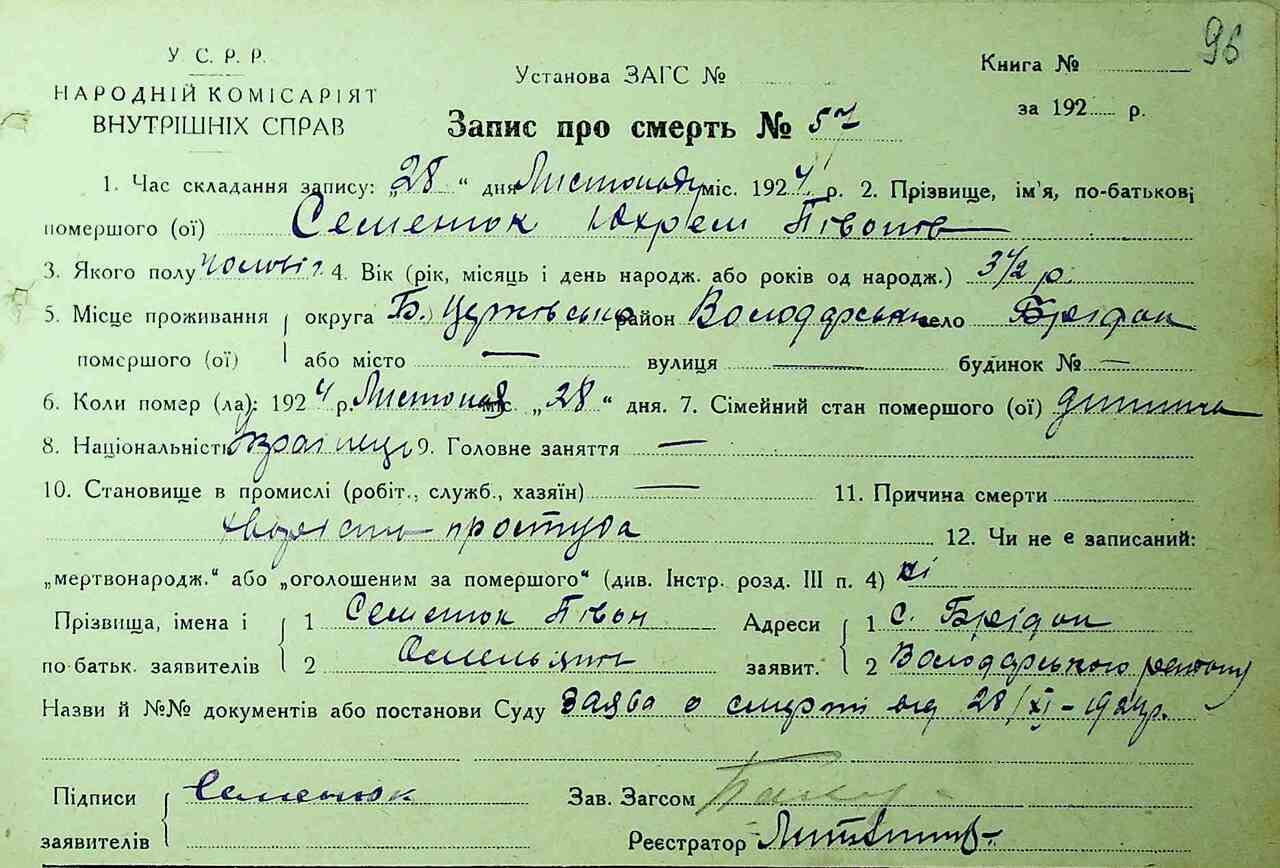 96
У. С. Р. Р.
НАРОДНІЙ КОМІСАРІЯТ
ВНУТРІШНІХ СПРАВ
Установа ЗАГС №
Книга №
за 192 р.
Запис про смерть № 57
1. Час складання запису: „28“ дня Листопада міс. 1924 р. 2. Прізвище, ім'я, по-батькові
помершого (ої) Семенюк Юхрем Півонів
3. Якого полу чоловіч. 4. Вік (рік, місяць і день народж. або років од народж.) 3 1/2 р.
5. Місце проживання помершого (ої) округа Б. Церковська район Володарськ село
або місто — вулиця — будинок № —
6. Коли помер (ла): 1924 р. Листопад міс. „28“ дня. 7. Сімейний стан помершого (ої) дитина
8. Національність Українець 9. Головне заняття —
10. Становище в промислі (робіт., служб., хазяїн) — 11. Причина смерти
простуда 12. Чи не є записаний:
„мертвонародж.“ або „оголошеним за помершого“ (див. Інстр. розд. III п. 4) ні
Прізвища, імена і 1 Семенюк Півон Адреси 1 с.
по батьк. заявителів 2 заявит. 2 Володарського району
Назви й №№ документів або постанови Суду заява о смерті від 28/XI-1924р.
Підписи Семенюк Зав. Загсом
заявителів Реєстратор